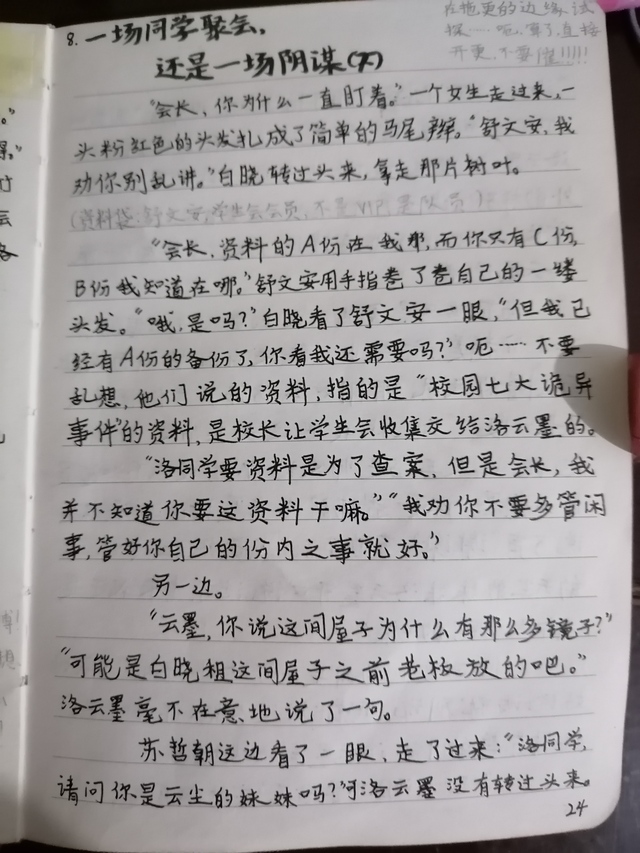 在拖更的边缘试
探……呃,算了,直接
开更,不要催!!!!!
8.一场同学聚会,
还是一场阴谋(下)
“会长,你为什么一直盯着。”一个女生走过来,一
头粉红色的头发扎成了简单的马尾辫。“舒文安,我
劝你别乱讲。”白晓转过头来,拿走那片树叶。
(资料袋:舒文安,学生会会员,不是VIP,是队员)
“会长,资料的A份在我那,而你只有C份,
B份我知道在哪。”舒文安用手指卷了卷自己的一缕
头发。“哦,是吗?”白晓看了舒文安一眼,“但我已
经有A份的备份了,你看我还需要吗?”呃……不要
乱想,他们说的资料,指的是“校园七大诡异
事件”的资料,是校长让学生会收集交给洛云墨的。
“洛同学要资料是为了查案,但是会长,我
并不知道你要这资料干嘛。”“我劝你不要多管闲
事,管好你自己的份内之事就好。”
另一边。
“云墨,你说这间屋子为什么有那么多镜子?”
“可能是白晓租这间屋子之前老板放的吧。”
洛云墨毫不在意地说了一句。
苏哲朝这边看了一眼,走了过来:“洛同学,
请问你是云尘的妹妹吗?”洛云墨没有转过头来。
24